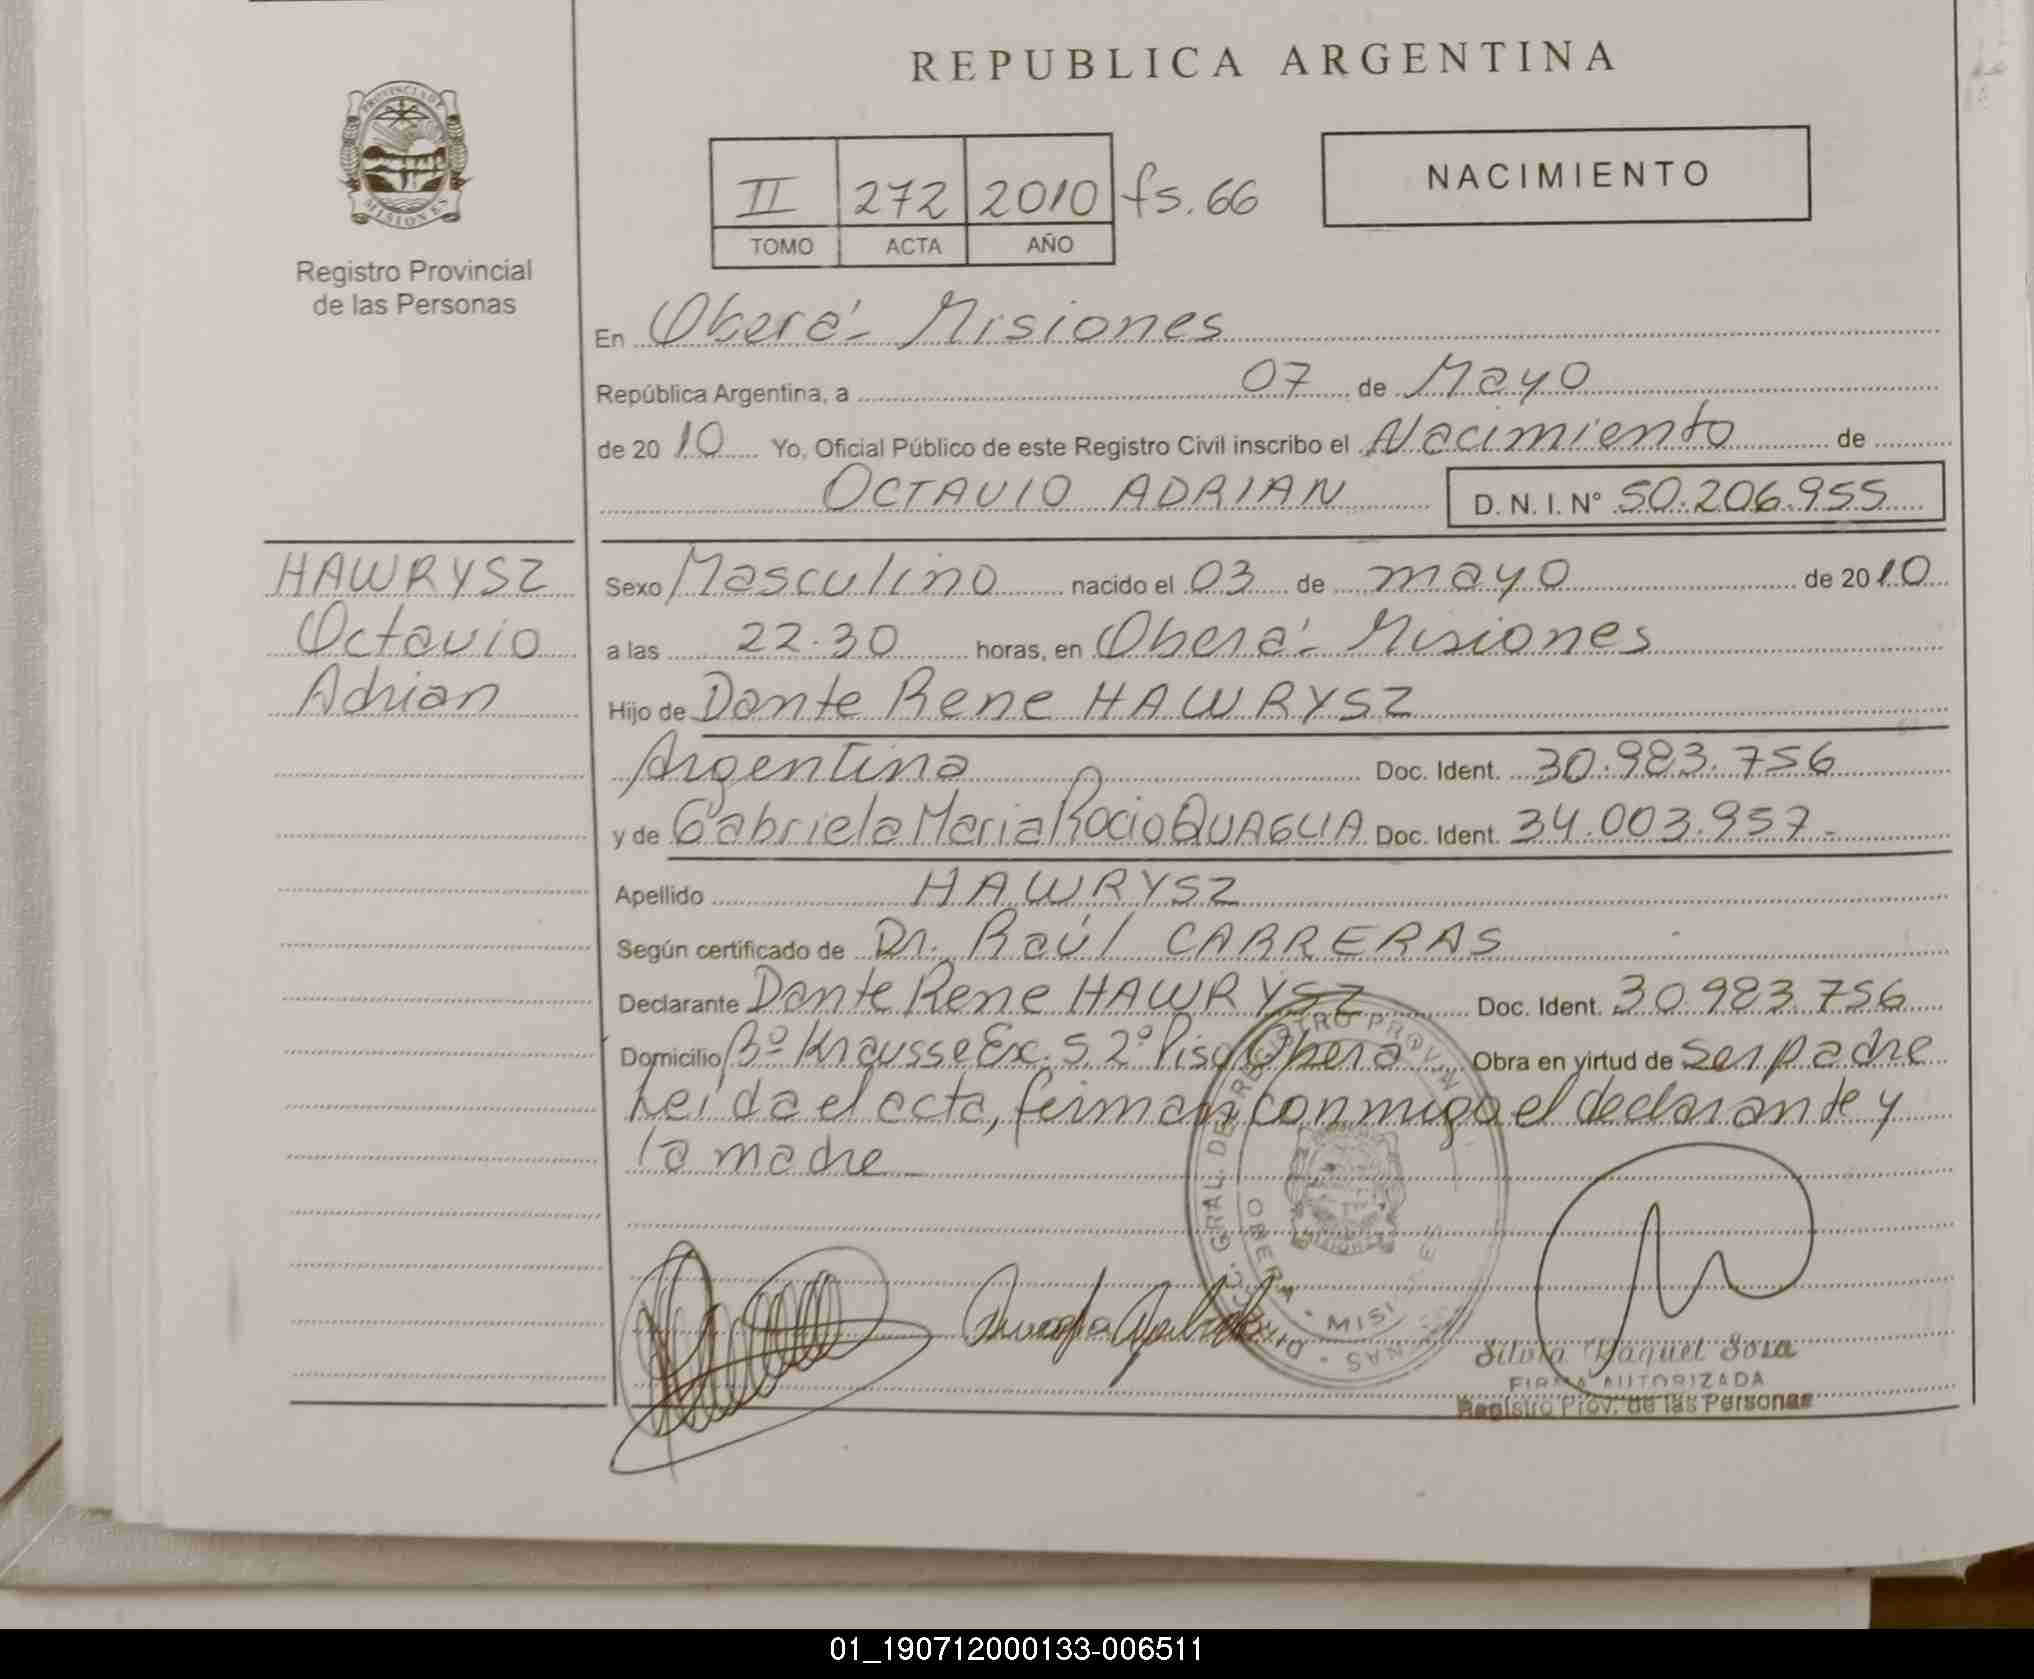 REPUBLICA ARGENTINA
PROVINCIA DE MISIONES
Registro Provincial
de las Personas
II 272 2010 fs. 66
TOMO ACTA AÑO
NACIMIENTO
En Oberá - Misiones
República Argentina, a 07 de Mayo
de 2010 Yo, Oficial Público de este Registro Civil inscribo el Nacimiento de
OCTAVIO ADRIAN D. N. I. N° 50.206.955
HAWRYSZ
Octavio
Adrian
Sexo Masculino nacido el 03 de mayo de 2010
a las 22.30 horas, en Oberá - Misiones
Hijo de Dante Rene HAWRYSZ
Argentina Doc. Ident. 30.983.756
y de Gabriela Maria Rocio QUAGLIA Doc. Ident. 34.003.957-
Apellido HAWRYSZ
Según certificado de Dr. Raúl CARRERAS
Declarante Dante Rene HAWRYSZ Doc. Ident. 30.983.756
Domicilio Bº Krausse Ex. S. 2º Piso Oberá Obra en virtud de ser padre
Leída el acta, firman conmigo el declarante y
la madre_
DIRECC. GRAL. DE REGISTRO PROVIN
NAS
OBERA • MISI ES
Silvia Raquel Sosa
FIRMA AUTORIZADA
Registro Prov. de las Personas
01_190712000133-006511